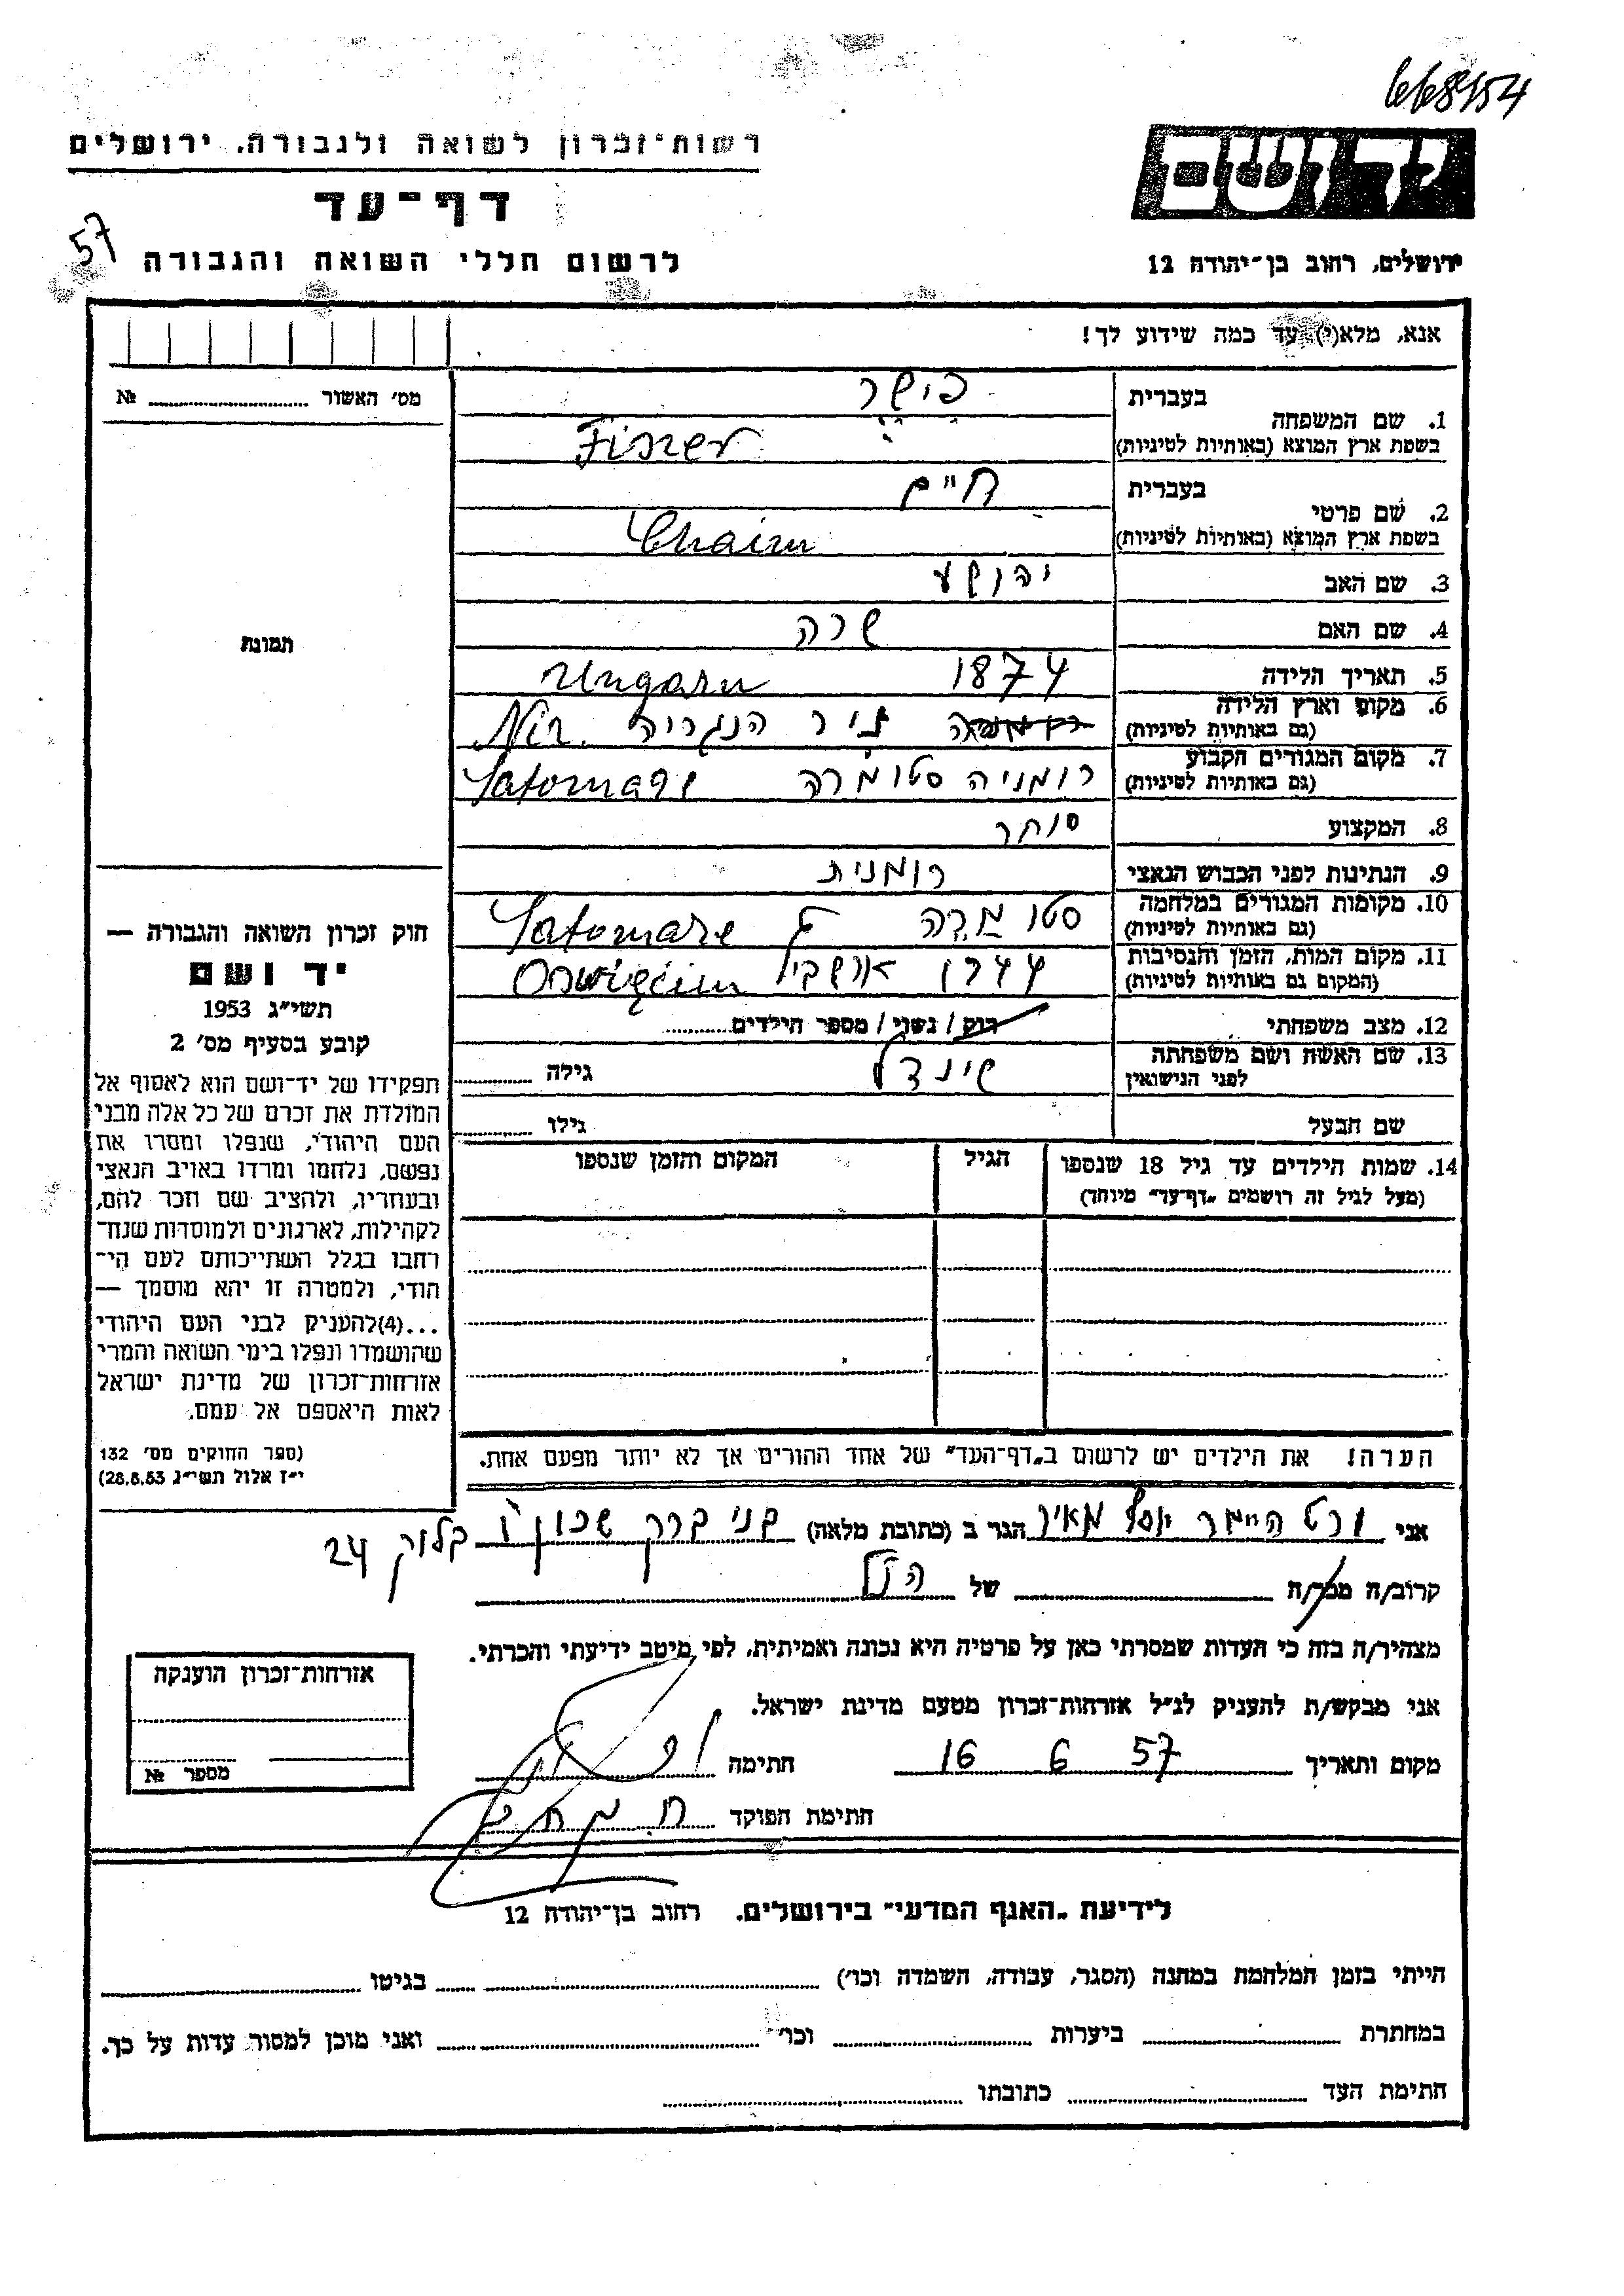 668154
רשות־זכרון לשואה ולגבורה. ירושלים
דף־עד
57
לרשום חללי השואה והגבורה
יד ושם
ירושלים, רחוב בן־יהודה 12
אנא, מלא(י) עד כמה שידוע לך!
מס׳ האשור № 
תמונת
1. שם המשפחה
בעברית פישר
בשפת ארץ המוצא (באותיות לטיניות) Fiszer
2. שם פרטי
בעברית חיים
בשפת ארץ המוצא (באותיות לטיניות) Chaim
3. שם האב יהושע
4. שם האם שרה
5. תאריך הלידה 1874 Ungarn
6. מקום וארץ הלידה ניר הנגריה Nir.
(גם באותיות לטיניות)
7. מקום המגורים הקבוע רומניה סטומרה Satomare
(גם באותיות לטיניות)
8. המקצוע סוחר
9. הנתינות לפני הכבוש הנאצי רומנית
10. מקומות המגורים במלחמה סטומרה Satomare
(גם באותיות לטיניות)
11. מקום המות, הזמן והנסיבות
(המקום גם באותיות לטיניות)
12. מצב משפחתי רוק / נשוי / מספר הילדים
13. שם האשה ושם משפחתה שינדל גילה
לפני הנישואין
שם הבעל גילו
14. שמות הילדים עד גיל 18 שנספו הגיל המקום והזמן שנספו
(מעל לגיל זה רושמים „דף־עד״ מיוחד)
הערה! את הילדים יש לרשום ב„דף־העד״ של אחד ההורים אך לא יותר מפעם אחת.
חוק זכרון השואה והגבורה —
יד ושם
תשי״ג 1953
קובע בסעיף מס׳ 2
תפקידו של יד־ושם הוא לאסוף אל
המולדת את זכרם של כל אלה מבני
העם היהודי, שנפלו ומסרו את
נפשם, נלחמו ומרדו באויב הנאצי
ובעוזריו, ולהציב שם וזכר להם,
לקהילות, לארגונים ולמוסדות שנח־
רבו בגלל השתייכותם לעם הי־
הודי, ולמטרה זו יהא מוסמך —
...(4)להעניק לבני העם היהודי
שהושמדו ונפלו בימי השואה והמרי
אזרחות־זכרון של מדינת ישראל
לאות היאספם אל עמם.
(ספר החוקים מס׳ 132
י״ז אלול תשי״ג 28.8.53)
אני מאיר הגר ב (כתובת מלאה) בני ברק שכון ו בלוק 24
קרוב/ה מכר/ה של הנ״ל
מצהיר/ה בזה כי העדות שמסרתי כאן על פרטיה היא נכונה ואמיתית, לפי מיטב ידיעתי והכרתי.
אני מבקש/ת להעניק לנ״ל אזרחות־זכרון מטעם מדינת ישראל.
מקום ותאריך 16 6 57 חתימה
חתימת הפוקד
אזרחות־זכרון הוענקה
מספר №
לידיעת „האגף המדעי״ בירושלים. רחוב בן־יהודה 12
הייתי בזמן המלחמה במחנה (הסגר, עבודה, השמדה וכו׳) בגיטו
במחתרת ביערות וכו׳ ואני מוכן למסור עדות על כך.
חתימת העד כתובתו